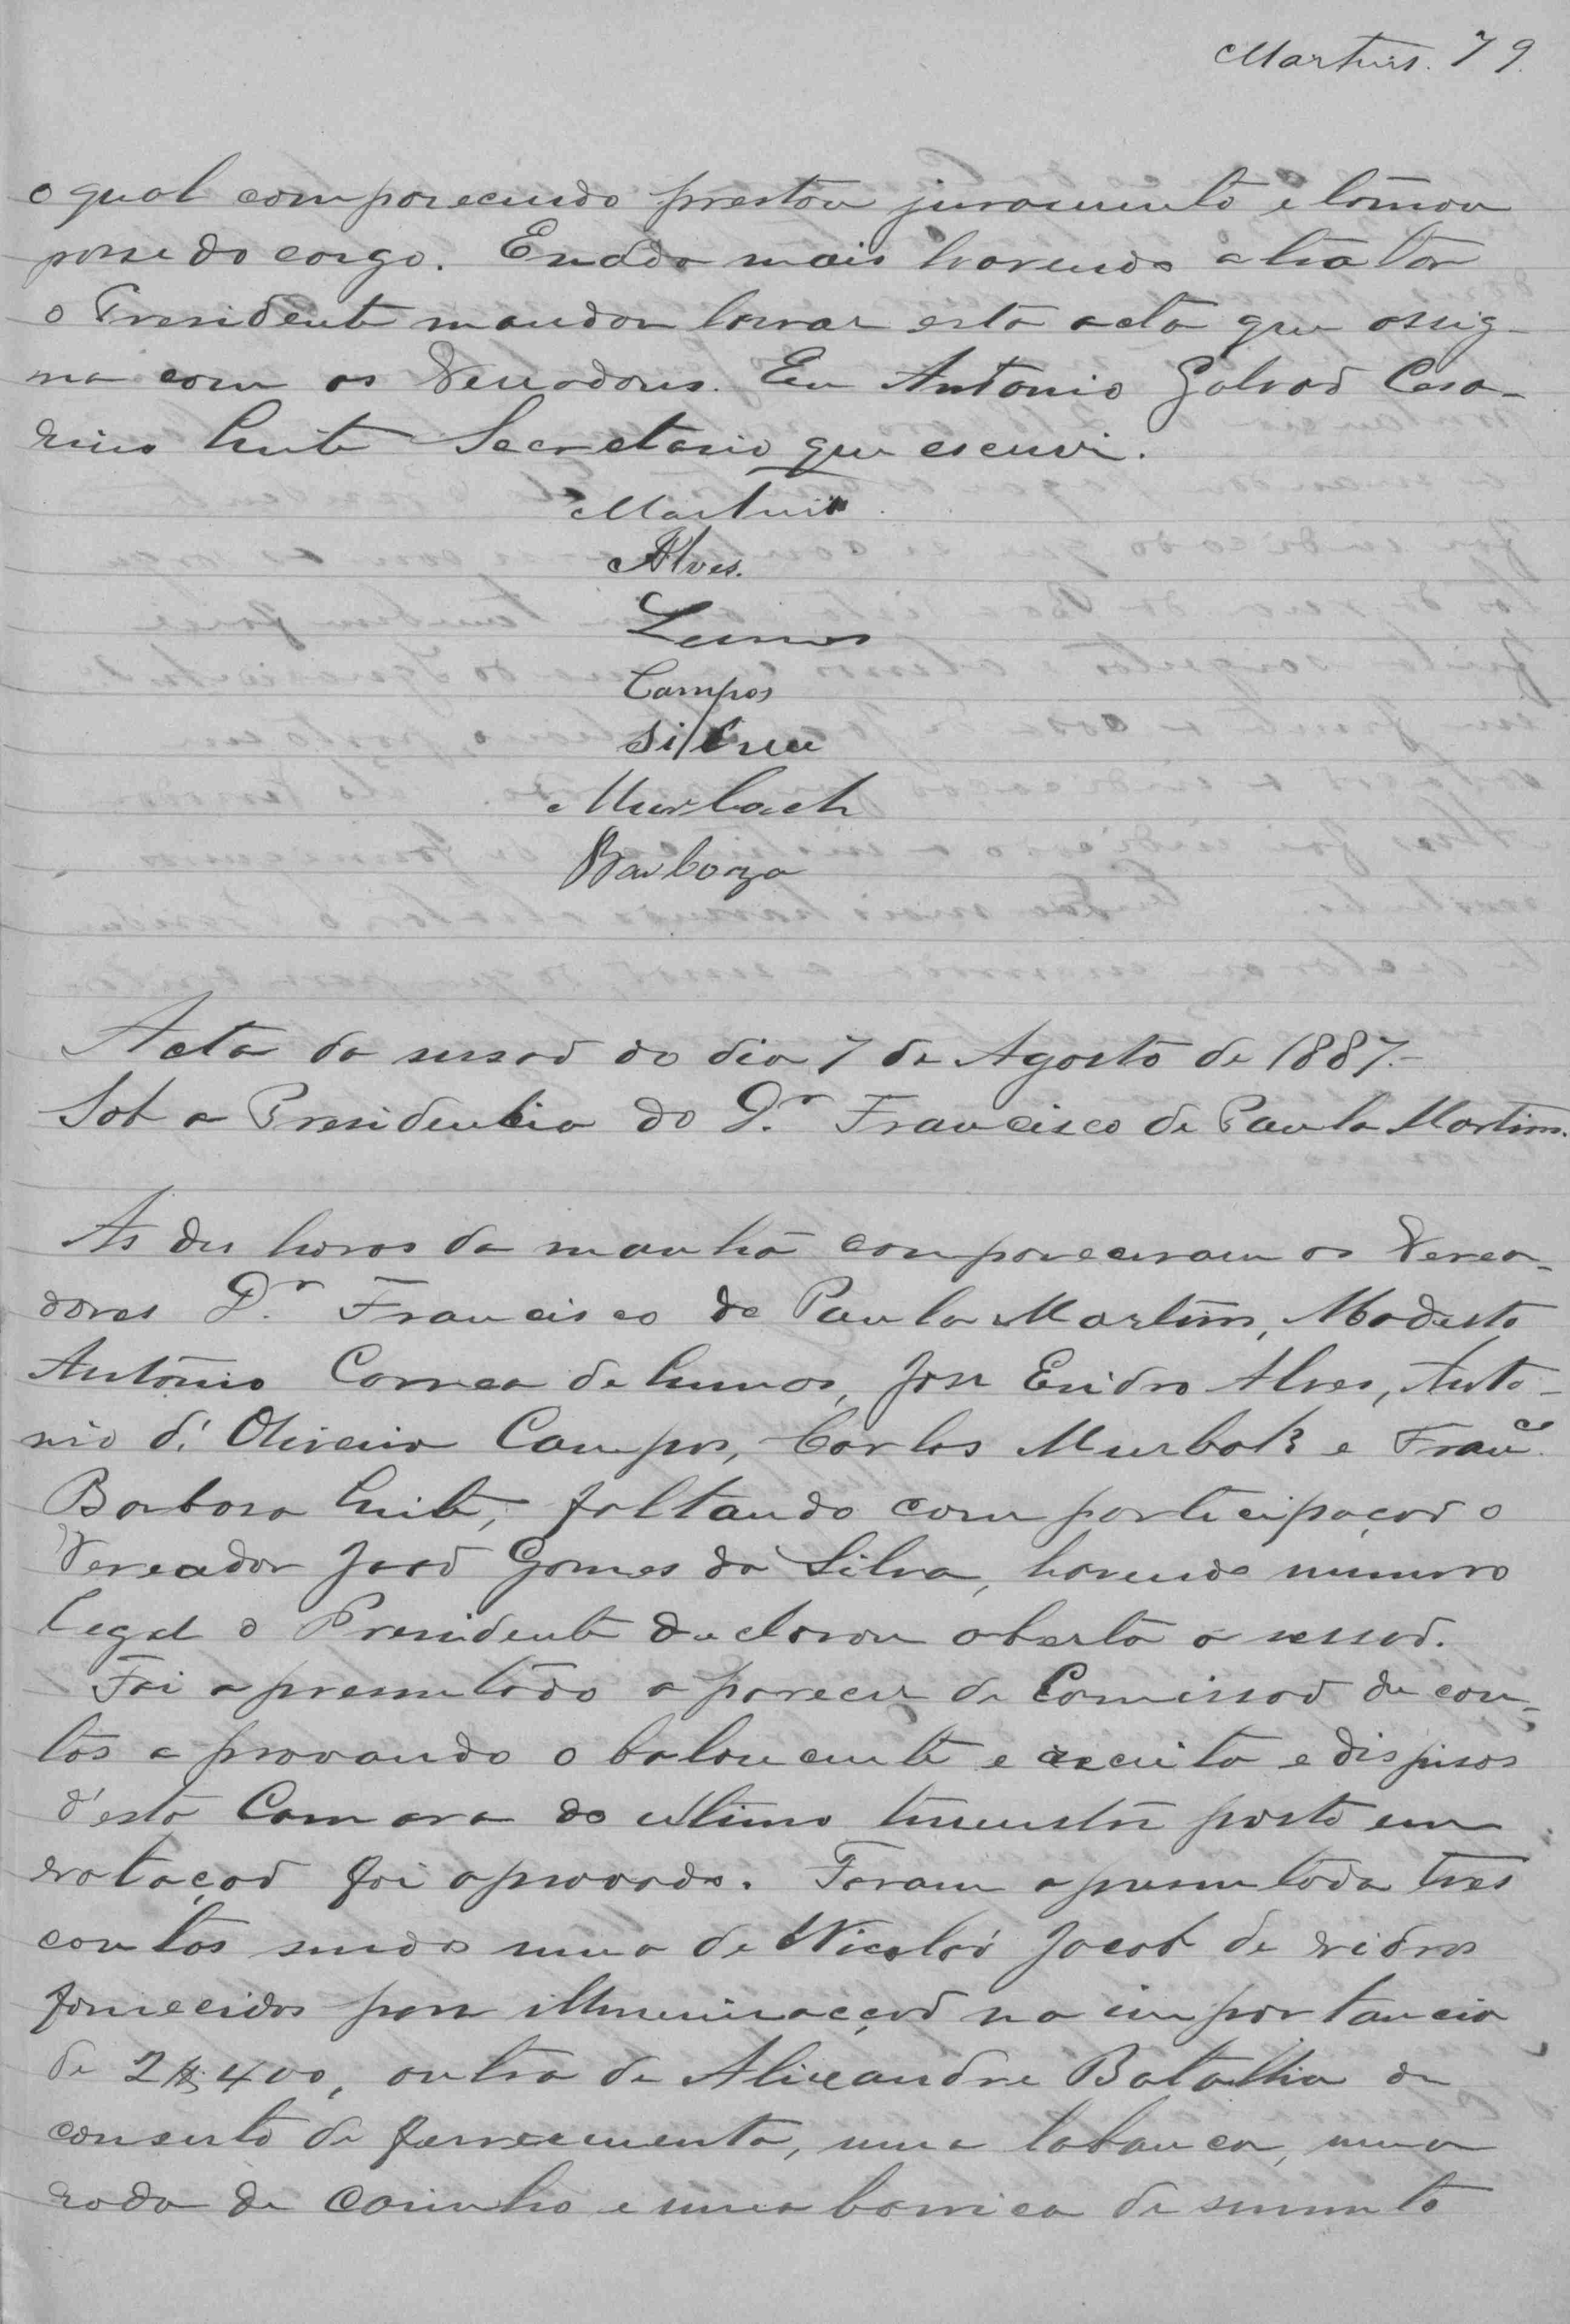 Martins. 79.
o qual comparecendo prestou juramento e tomou
posse do cargo. E nada mais havendo a tratar
o Presidente mandou lavrar esta acta que assig-
na com os Vereadores. Eu Antonio Galvaõ Cesa-
rino Leite Secretario que escrevi.
Martins
Alves.
Lemos
Campos
Silva
Murbach
Barboza
Acta da sessaõ do dia 7 de Agosto de 1887.-
Sob a Presidencia do Dr. Francisco de Paula Martins.
As des horas da manhã compareceram os Verea-
dores Dr. Francisco de Paula Martins, Modesto
Antonio Correa de Lemos, José Alves, Anto-
nio d'Oliveira Campos, Carlos Murbak e Franco.
Barbosa Leite, faltando com participaçaõ o
Vereador Joaõ Gomes da Silva, havendo numero
legal o Presidente declarou aberta a sessaõ.
Foi apresentado o parecer da Comissaõ de con-
tas approvando o balancente e receita e dispisas
d'esta Camara do ultimo trimestre posto em
votaçaõ foi aprovado. Foram apresentada tres
contas sendo uma de Nicoláo Jacob de vidros
fornecidos para illuminacçaõ na importancia
de 2$400, outra de Alixandre Batalha de
conserto de ferramenta, uma labanca, uma
roda de carinho e uma barrica de simento